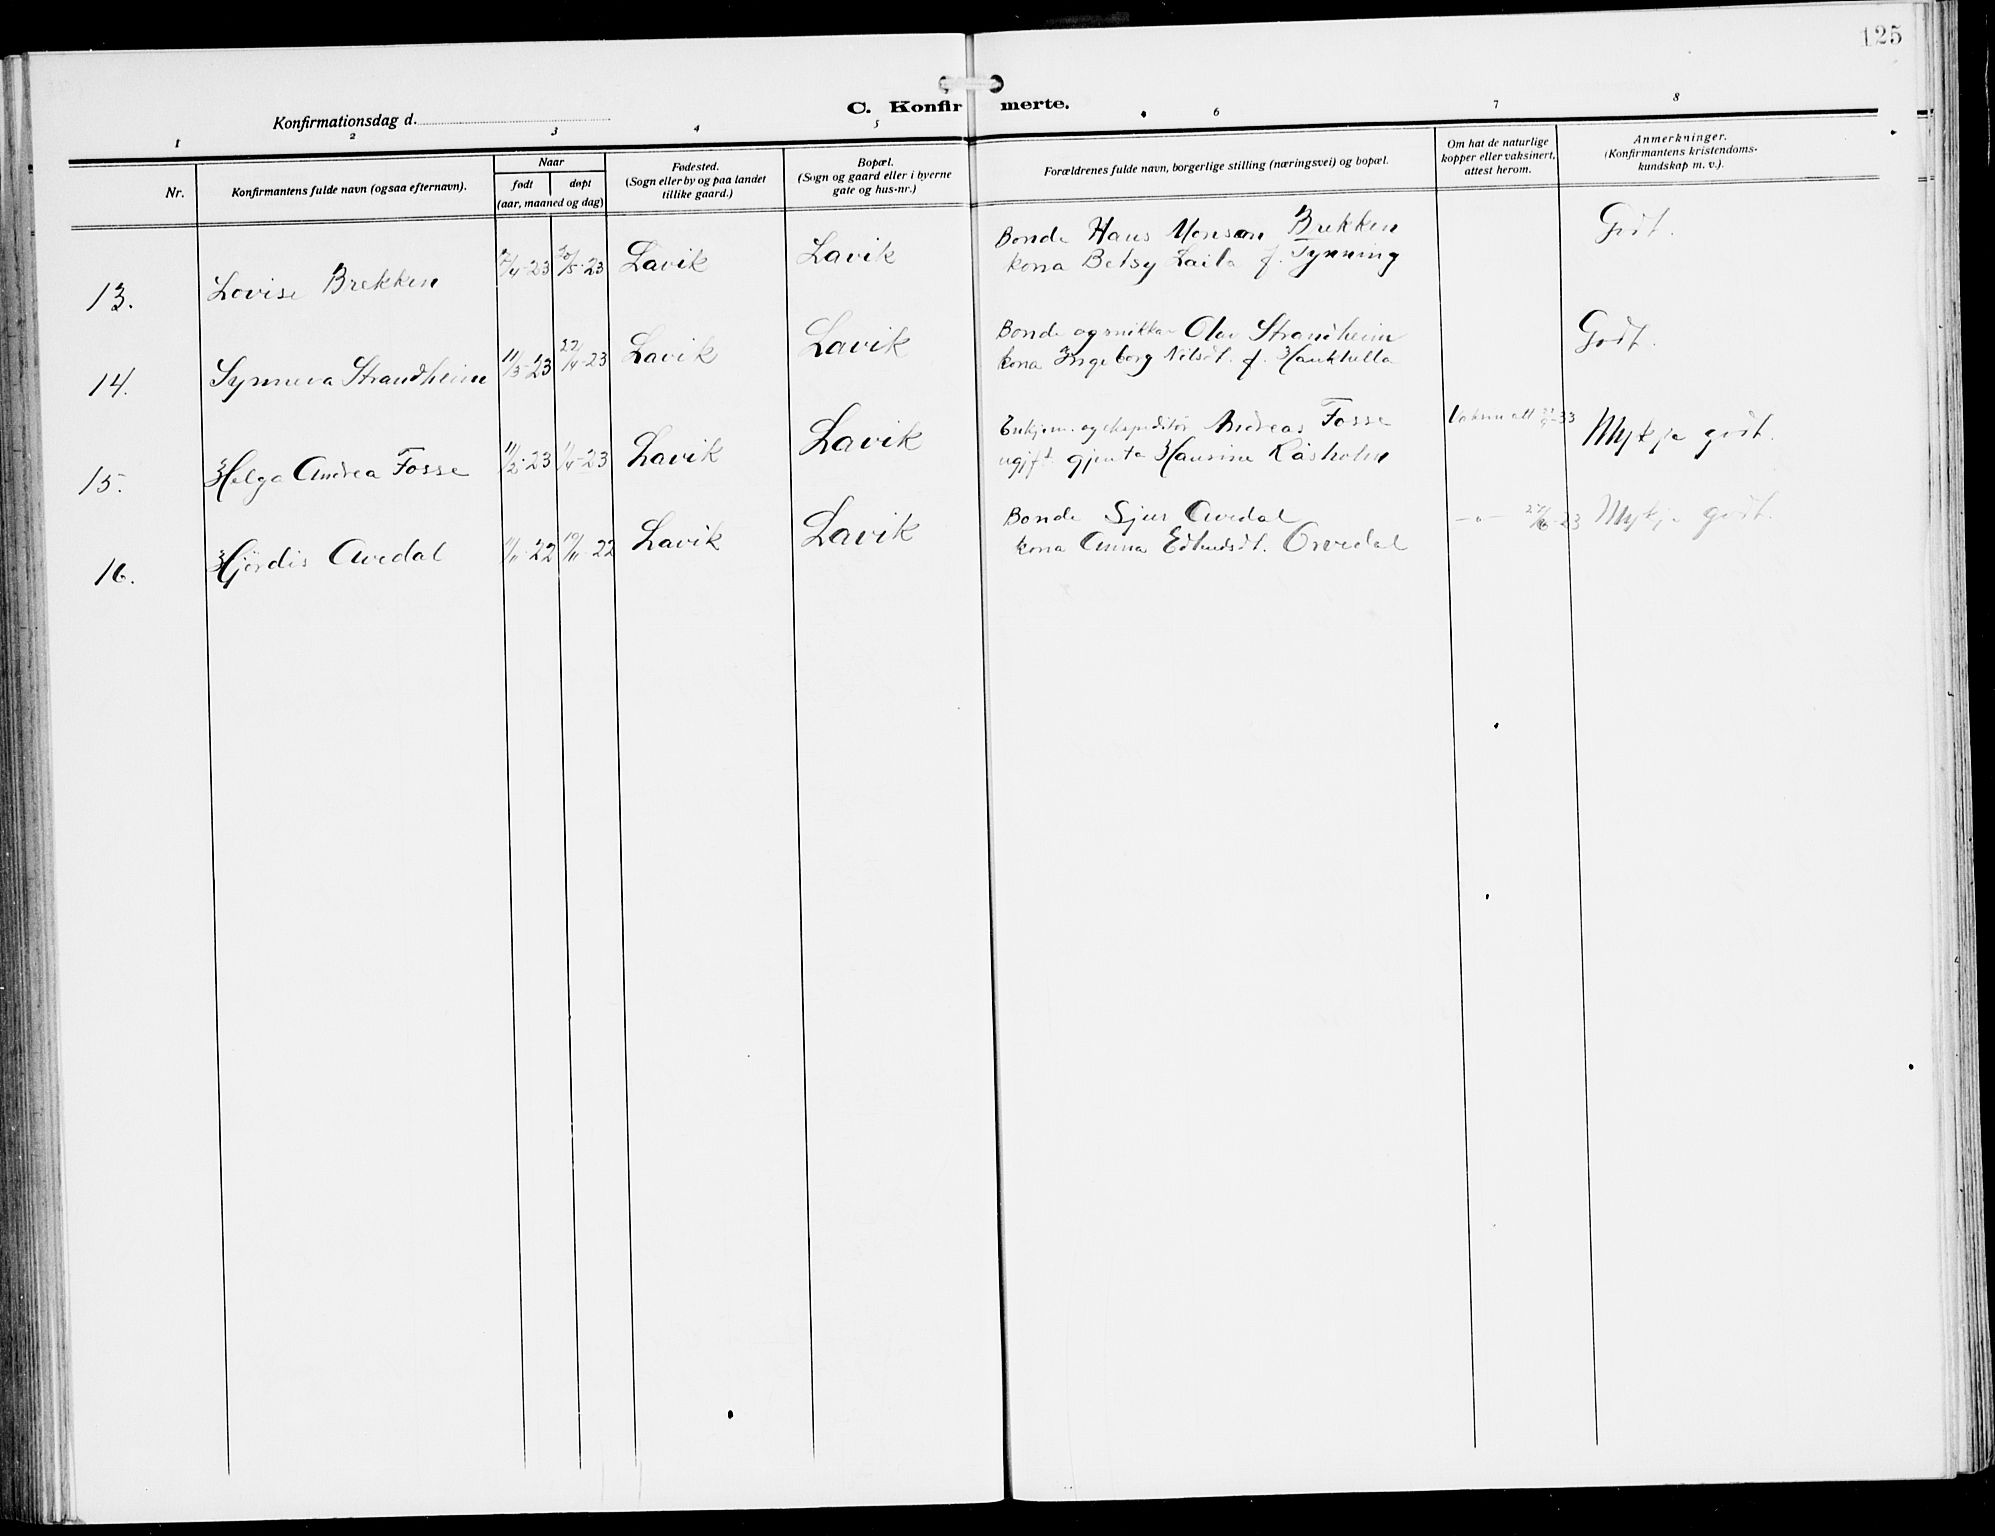 125
C. Konfirmerte.
Konfirmationsdag d.
1 2 3 4 5 6 7 8
Nr.
Konfirmantens fulde navn (ogsaa efternavn).
Naar
født døpt
(aar, maaned og dag)
Fødested.
(Sogn eller by og paa landet
tillike gaard.)
Bopæl.
(Sogn og gaard eller i byerne
gate og hus-nr.)
Forældrenes fulde navn, borgerlige stilling (næringsvei) og bopæl.
Om hat de naturlige
kopper eller vaksinert,
attest herom.
Anmerkninger.
(Konfirmantens kristendoms-
kundskap m. v.).
13. Lovise Brekken 7/4-23 20/5-23 Lavik Lavik
Bonde Hans Monsson Brekken
kona Betsy Laila f. Tynning
Godt.
14. Synneva Strandheim 11/3-23 22/4-23 Lavik Lavik
Bonde og snikkar Olav Strandheim
kona Ingeborg Nilsdt. f.
Godt.
15. Helga Andrea Fosse 11/2-23 1/4-23 Lavik Lavik
Enkjem. og ekspeditør Andreas Fosse
ugift gjenta Hansine Råsholm
Mykje godt.
16. Hjördis Avedal 11/11-22 19/11-22 Lavik Lavik
Bonde Sjur Avedal
kona Anna
-"- Mykje godt.